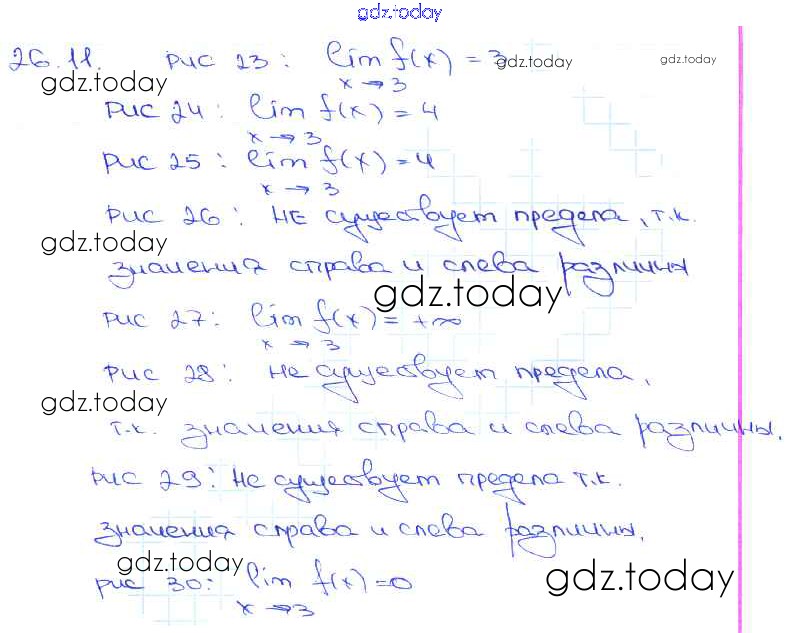 gdz.today
26.11. рис 23: lim f(x) = 3 gdz.today gdz.today
gdz.today x → 3
рис 24: lim f(x) = 4
x → 3
рис 25: lim f(x) = 4
x → 3
рис 26: не существует предела, т.к.
gdz.today
значения справа и слева различны
gdz.today
рис 27: lim f(x) = +∞
x → 3
рис 28: не существует предела,
gdz.today
т.к. значения справа и слева различны.
рис 29: не существует предела т.к.
значения справа и слева различны.
gdz.today
рис 30: lim f(x) = 0 gdz.today
x → 3